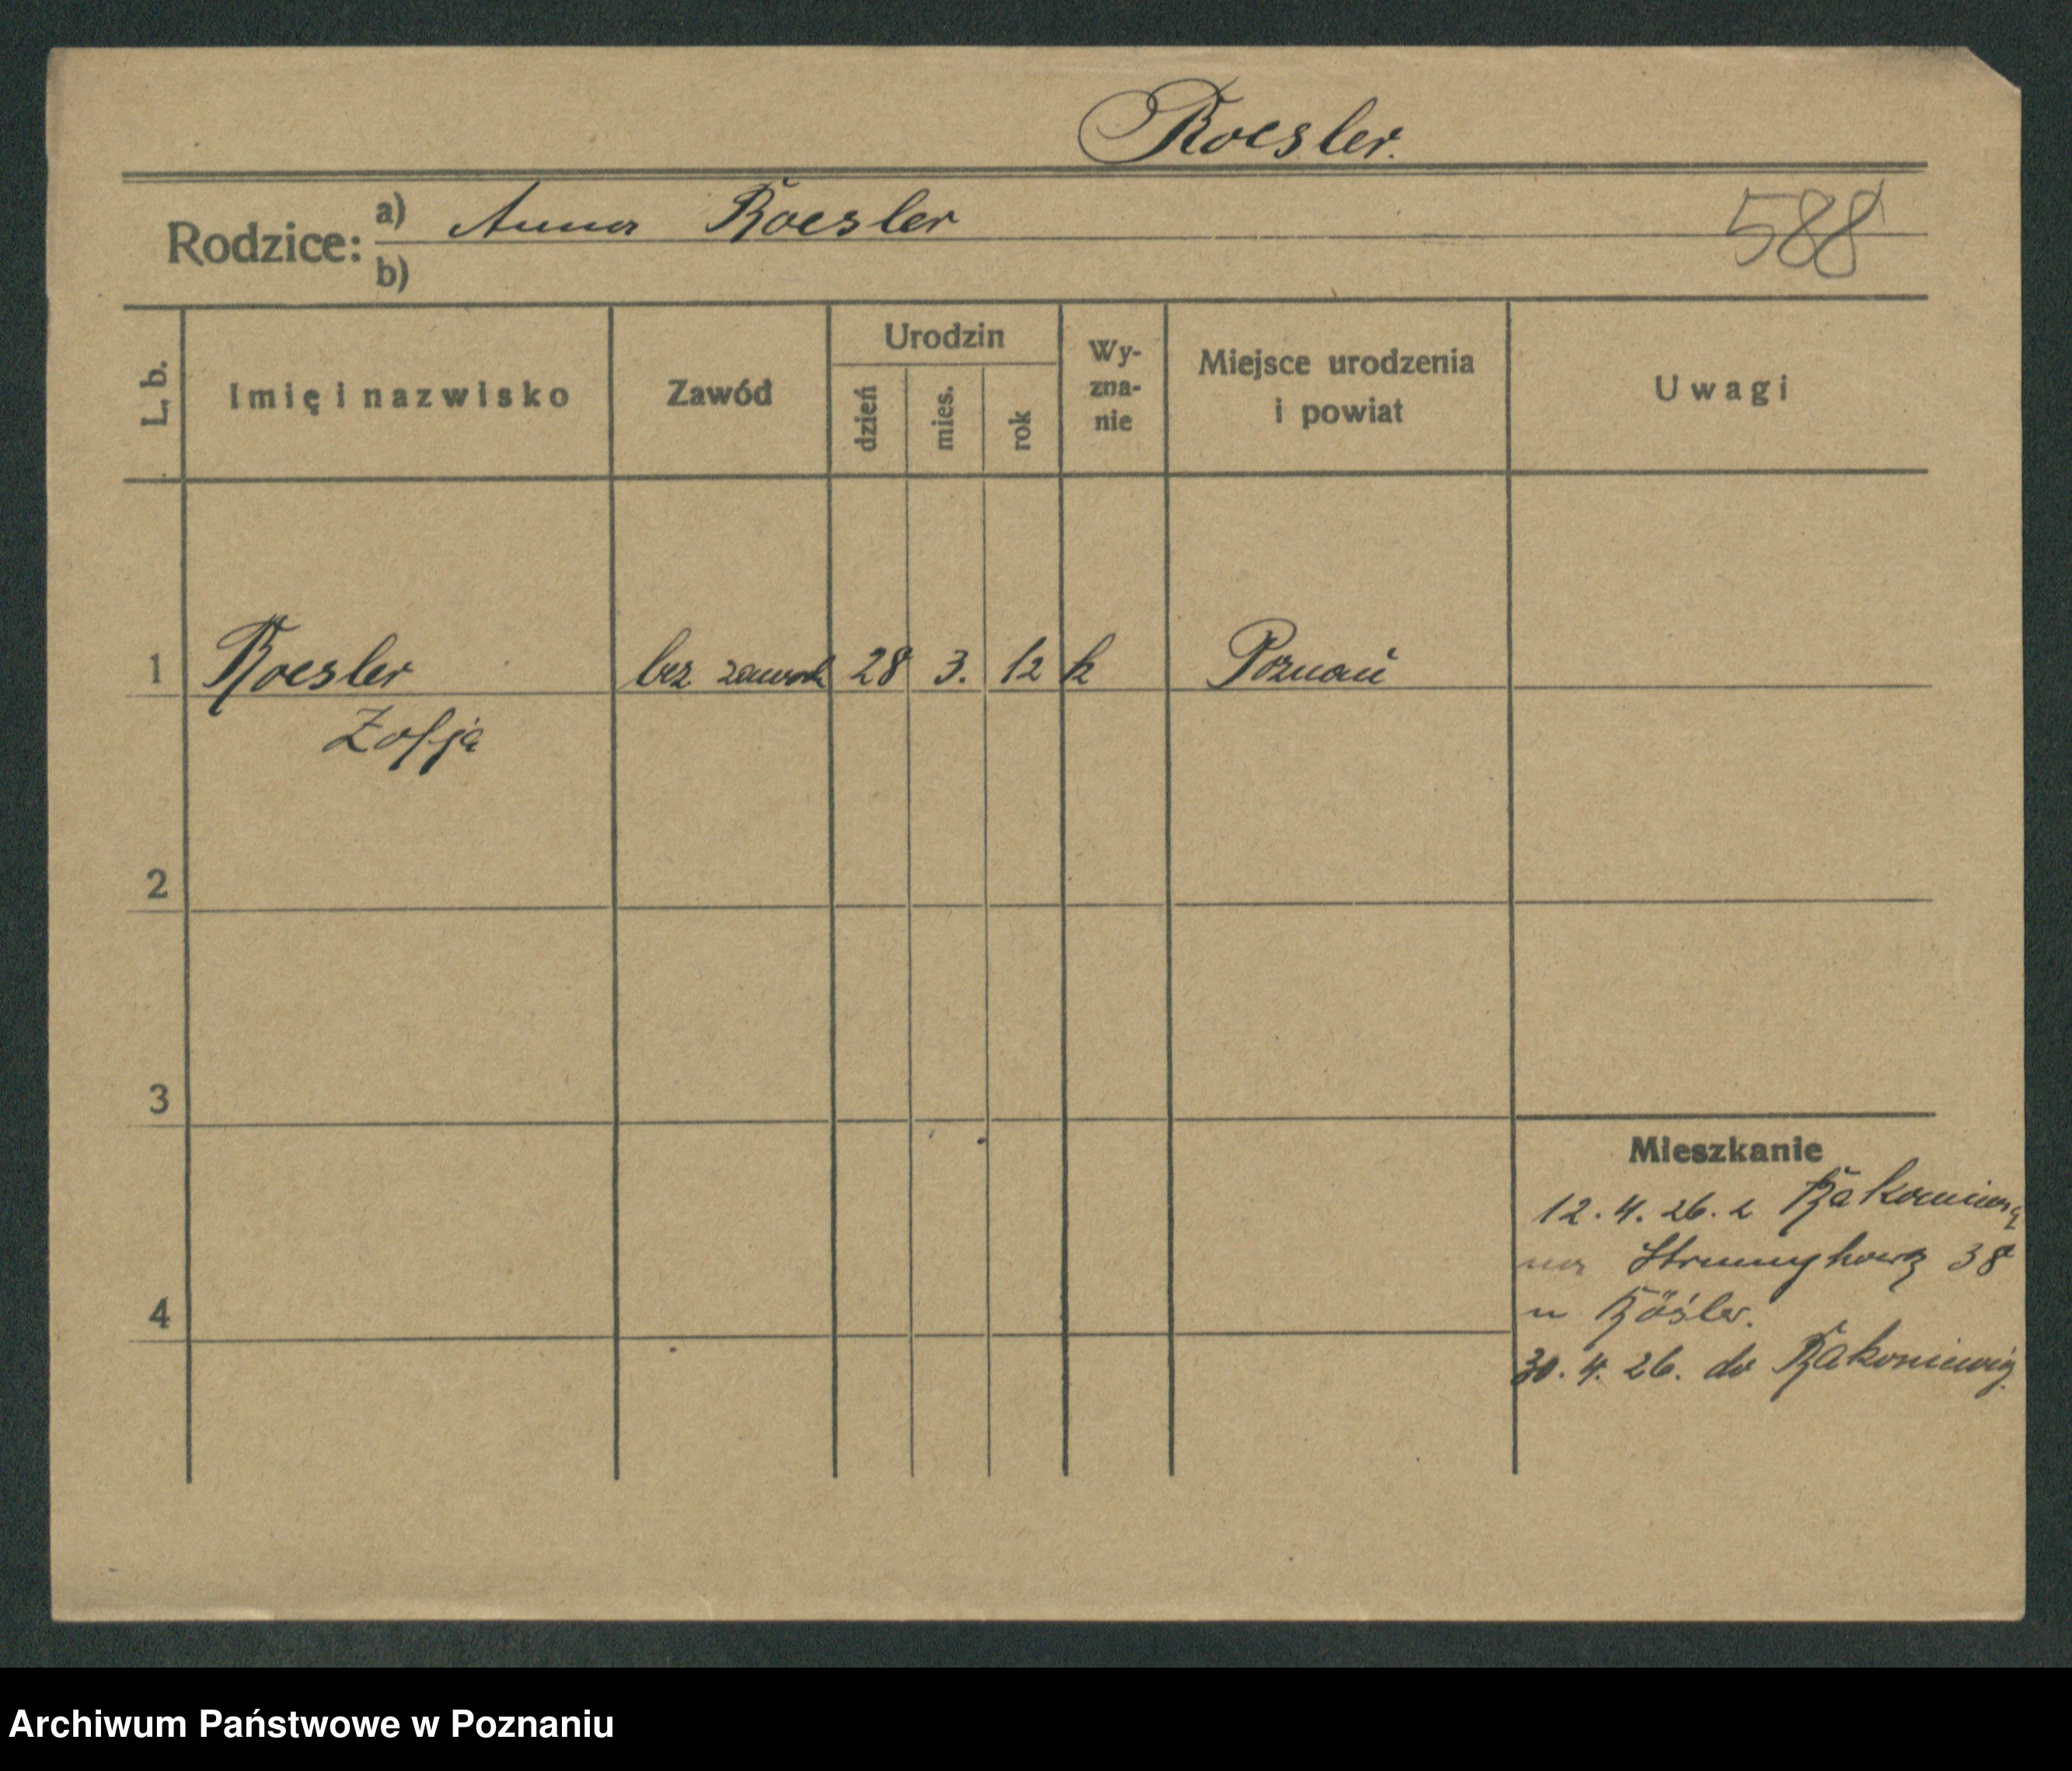 Roesler.
Rodzice: a) Anna Roesler 588
b)
L. b. Imię i nazwisko Zawód Urodzin dzień mies. rok Wy-zna-nie Miejsce urodzenia i powiat Uwagi
1 Roesler bez zawod 28 3. 12 k Poznań
Zofja
2
3
Mieszkanie
12. 4. 26. z
na 38
4
u Rösler.
30. 4. 26. do Rakoniewic
Archiwum Państwowe w Poznaniu